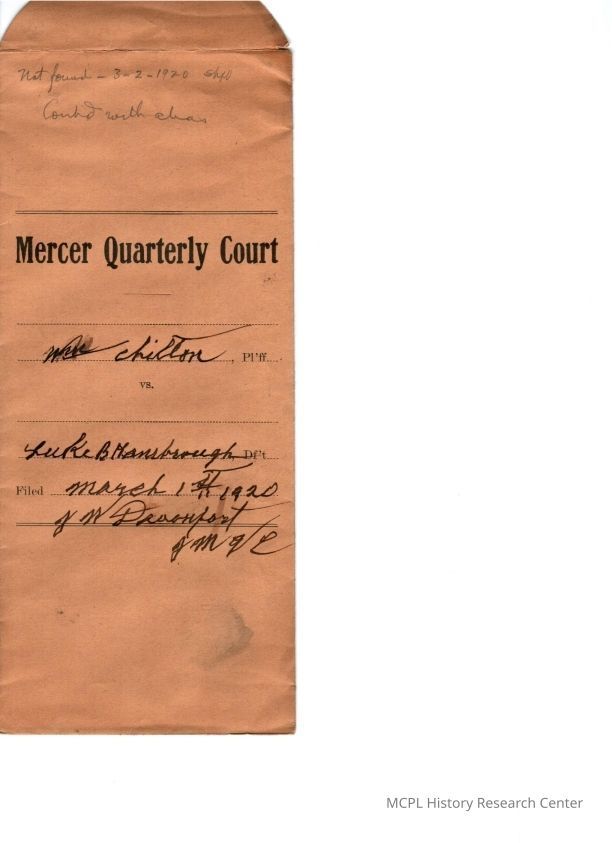 Not found - 3-2-1920
Contd with
Mercer Quarterly Court
Wm Chilton, Pl'ff.
vs.
Luke B Hansbrough, Df't
Filed March 1st 1920
J W Davenport
J M Q C
MCPL History Research Center